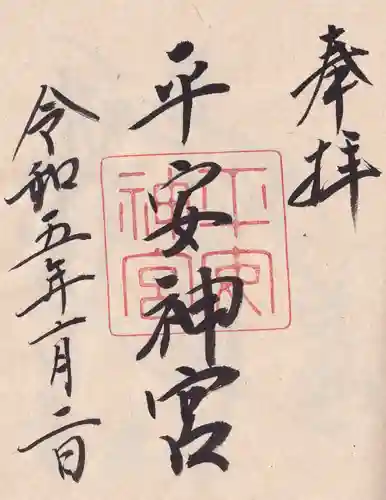 奉拝
平安神宮
令和五年二月二日
平安
神宮